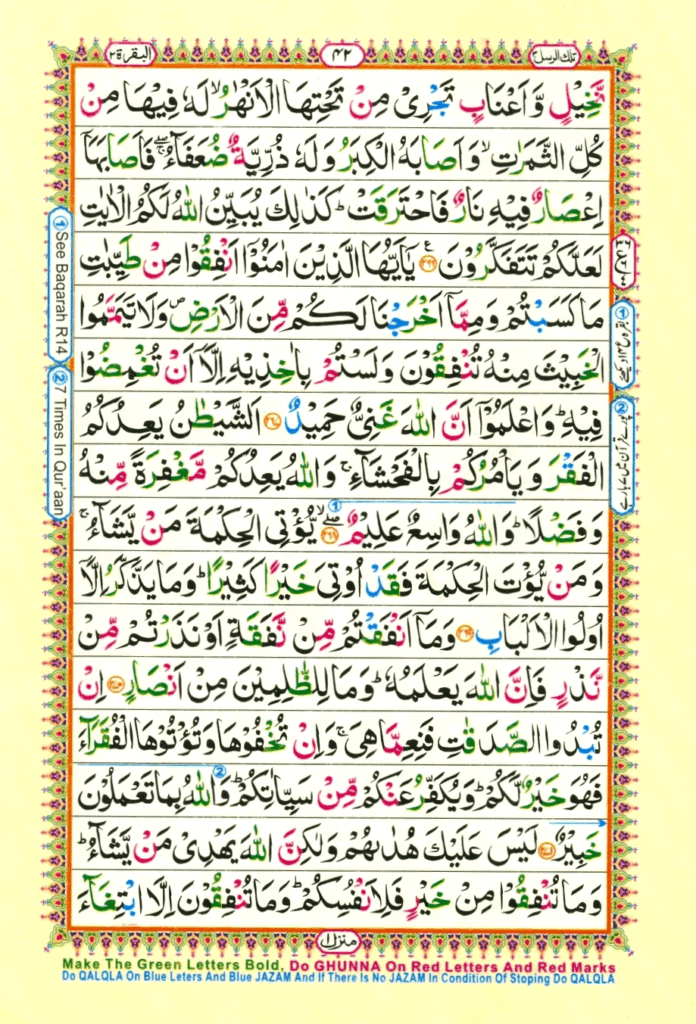 تلك الرسل ٣
٤٢
البقرة ٢
نَّخِيْلٍ وَّاَعْنَابٍ تَجْرِىْ مِنْ تَحْتِهَا الْاَنْهٰرُ ۙ لَهٗ فِيْهَا مِنْ
كُلِّ الثَّمَرٰتِ ۙ وَاَصَابَهُ الْكِبَرُ وَلَهٗ ذُرِّيَّةٌ ضُعَفَآءُ ۖۚ فَاَصَابَهَاۤ
اِعْصَارٌ فِيْهِ نَارٌ فَاحْتَرَقَتْ ؕ كَذٰلِكَ يُبَيِّنُ اللّٰهُ لَكُمُ الْاٰيٰتِ
لَعَلَّكُمْ تَتَفَكَّرُوْنَ ﴿٢٦٦﴾ يٰۤاَيُّهَا الَّذِيْنَ اٰمَنُوْۤا اَنْفِقُوْا مِنْ طَيِّبٰتِ
مَا كَسَبْتُمْ وَمِمَّاۤ اَخْرَجْنَا لَكُمْ مِّنَ الْاَرْضِ ۪ وَلَا تَيَمَّمُوا
الْخَبِيْثَ مِنْهُ تُنْفِقُوْنَ وَلَسْتُمْ بِاٰخِذِيْهِ اِلَّاۤ اَنْ تُغْمِضُوْا
فِيْهِ ؕ وَاعْلَمُوْۤا اَنَّ اللّٰهَ غَنِىٌّ حَمِيْدٌ ﴿٢٦٧﴾ اَلشَّيْطٰنُ يَعِدُكُمُ
الْفَقْرَ وَيَاْمُرُكُمْ بِالْفَحْشَآءِ ۚ وَاللّٰهُ يَعِدُكُمْ مَّغْفِرَةً مِّنْهُ
وَفَضْلًا ؕ وَاللّٰهُ وَاسِعٌ عَلِيْمٌ ﴿٢٦٨﴾ ۖۙ يُّؤْتِى الْحِكْمَةَ مَنْ يَّشَآءُ ۚ
وَمَنْ يُّؤْتَ الْحِكْمَةَ فَقَدْ اُوْتِىَ خَيْرًا كَثِيْرًا ؕ وَمَا يَذَّكَّرُ اِلَّاۤ
اُولُوا الْاَلْبَابِ ﴿٢٦٩﴾ وَمَاۤ اَنْفَقْتُمْ مِّنْ نَّفَقَةٍ اَوْ نَذَرْتُمْ مِّنْ
نَّذْرٍ فَاِنَّ اللّٰهَ يَعْلَمُهٗ ؕ وَمَا لِلظّٰلِمِيْنَ مِنْ اَنْصَارٍ ﴿٢٧٠﴾ اِنْ
تُبْدُوا الصَّدَقٰتِ فَنِعِمَّا هِىَ ۚ وَاِنْ تُخْفُوْهَا وَتُؤْتُوْهَا الْفُقَرَآءَ
فَهُوَ خَيْرٌ لَّكُمْ ؕ وَيُكَفِّرُ عَنْكُمْ مِّنْ سَيِّاٰتِكُمْ ؕ وَاللّٰهُ بِمَا تَعْمَلُوْنَ
خَبِيْرٌ ﴿٢٧١﴾ لَيْسَ عَلَيْكَ هُدٰىهُمْ وَلٰكِنَّ اللّٰهَ يَهْدِىْ مَنْ يَّشَآءُ ؕ
وَمَا تُنْفِقُوْا مِنْ خَيْرٍ فَلِاَنْفُسِكُمْ ؕ وَمَا تُنْفِقُوْنَ اِلَّا ابْتِغَآءَ
منزل ١
① See Baqarah R14
② 7 Times In Qur'aan
Make The Green Letters Bold, Do GHUNNA On Red Letters And Red Marks
Do QALQLA On Blue Leters And Blue JAZAM And If There Is No JAZAM In Condition Of Stoping Do QALQLA